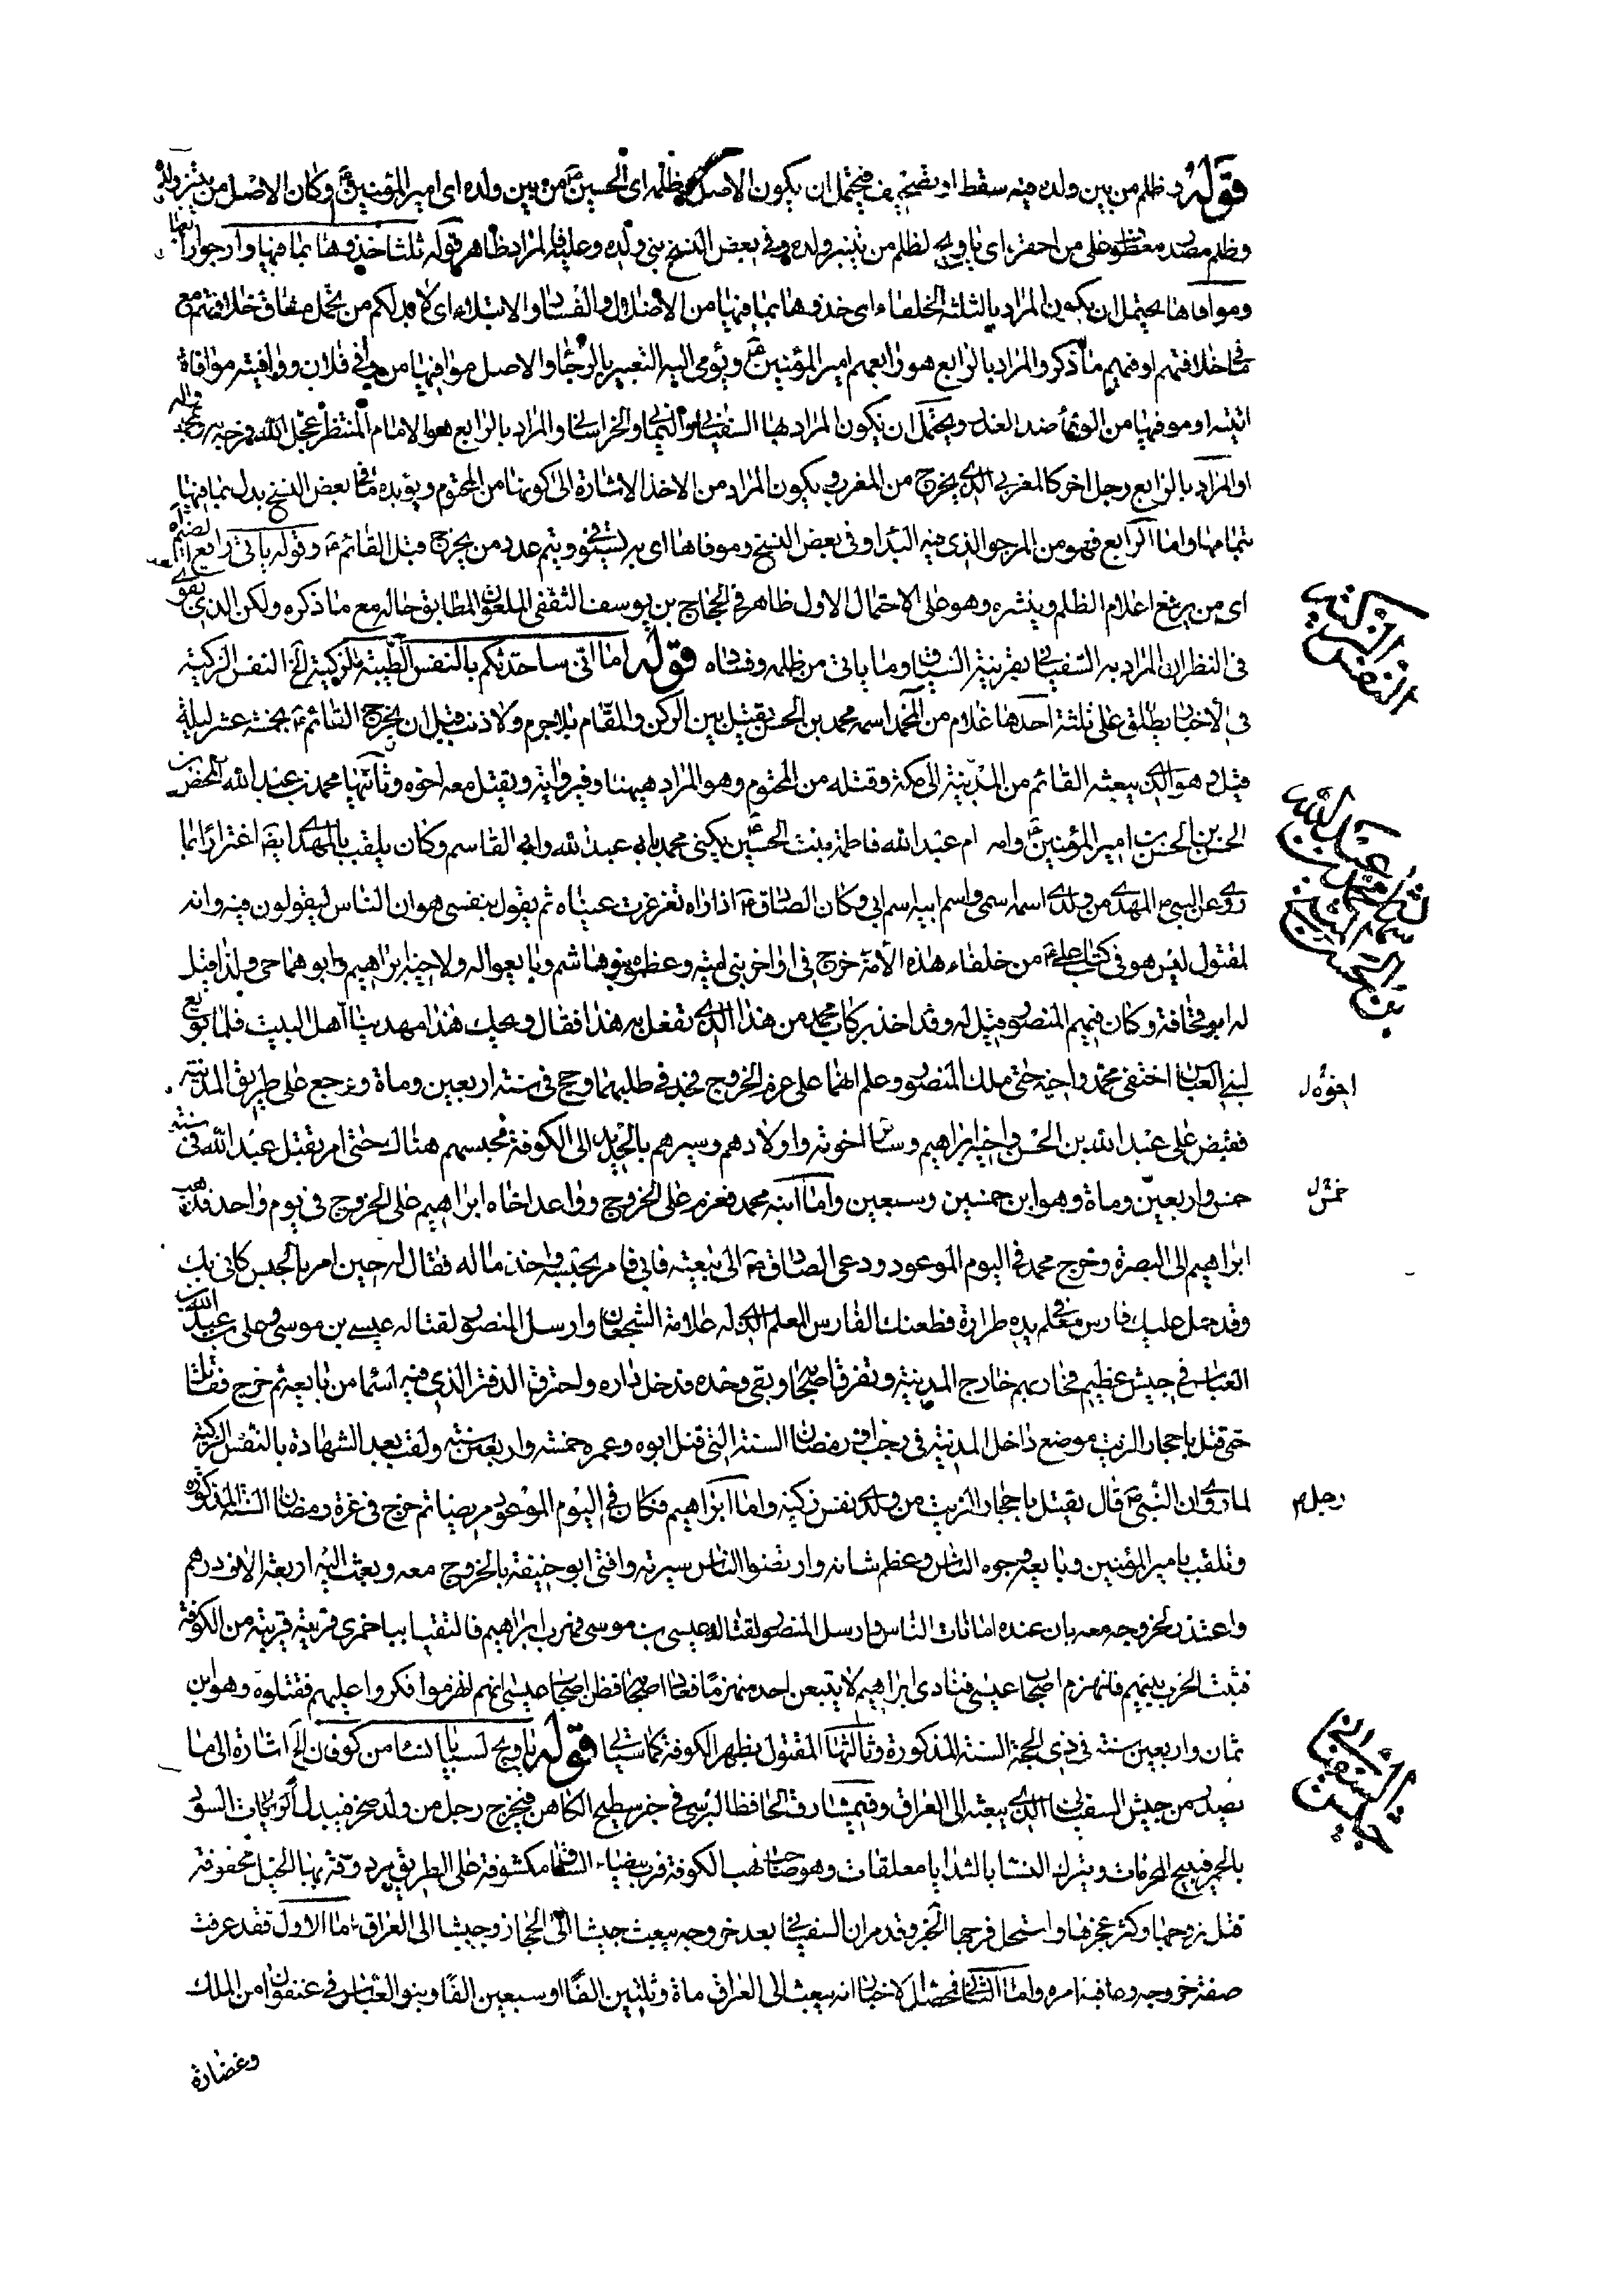 قوله وظلم من بين ولده فيه سقط او تصحيف فيحتمل ان يكون الاصل وظلمه اى الحسين ع من بين ولده اى امير المؤمنين ع وكان الاصل من
وظلم مصدر معطوف على من احقر اى يا ويح لظلم من ولده وفى بعض النسخ بنى ولده وعليه فالمراد ظاهر قوله ثلثا خذوها بما فيها وارجوا رابعها
وموافاها يحتمل ان يكون المراد بالثلثة الخلفاء اى خذوها بما فيها من الاضلال والفساد والابتلاء اى لا بد لكم من تحمل مشاق خلافتهم مع
ما فى خلافتهم او فيهم ما ذكر والمراد بالرابع هو رابعهم امير المؤمنين ع ويؤمى اليه التعبير بالرجاء والاصل موافيها من وافى فلان ووافيته موافاة
اتيته او موفيها من الوفاء ضد الغدر ويحتمل ان يكون المراد بها السفيانى واليمانى والخراسانى والمراد بالرابع هو الامام المنتظر عجل الله فرجه
او المراد بالرابع رجل اخر كالمغربى الذى يخرج من المغرب ويكون المراد من الاخذ الاشارة الى كونها من المحتوم ويؤيده ما فى بعض النسخ بدل بما فيها
بتمامها واما الرابع فهو من المرجو الذى فيه البداء وفى بعض النسخ وموفاها اى به يستوفى ويتم عدد من يخرج قبل القائم ع وقوله يأتى رافع
اى من يرفع اعلام الظلم وينشره وهو على الاحتمال الاول ظاهر فى الحجاج بن يوسف الثقفى الملعون المطابق حاله مع ما ذكره ولكن الذى يقوى
فى النظر ان المراد به السفيانى بقرينة السياق وما يأتى من ظلمه وفساده قوله اما انى ساحدثكم بالنفس الطيبة الزكية الخ النفس الزكية
فى الاخبار يطلق على ثلثة احدها غلام من ال محمد اسمه محمد بن الحسن يقتل بين الركن والمقام بلا جرم ولا ذنب قبل ان يخرج القائم ع بخمسة عشر ليلة
قيل هو الذى يبعثه القائم من المدينة الى مكة وقتله من المحتوم وهو المراد هيهنا وفى رواية ويقتل معه اخوه وثانيها محمد بن عبد الله المحض بن
الحسن بن الحسن بن امير المؤمنين ع وامه ام عبد الله فاطمة بنت الحسين يكنى محمد بابى عبد الله وابى القاسم وكان يلقب بالمهدى ايضا اغترارا بما
روى عن النبى ص المهدى من ولدى اسمه اسمى واسم ابيه اسم ابى وكان الصادق ع اذا راه تغرغرت عيناه ثم يقول بنفسى هو ان الناس ليقولون فيه وانه
لمقتول ليس هو فى كتاب على ع من خلفاء هذه الامة خرج فى اواخر بنى امية وعظموه بنو هاشم وبايعوا له ولاخيه ابراهيم وابوهما حى ولذا قيل
له ابو قحافة وكان فيهم المنصور قيل له وقد اخذ بركاب محمد من هذا الذى تفعل به هذا فقال ويحك هذا مهدينا اهل البيت فلما بويع
لبنى العباس اختفى محمد واخيه حتى ملك المنصور وعلم انهما على عزم الخروج فجد فى طلبهما وحج فى سنة اربعين وماة ورجع على طريق المدينة
فقبض على عبد الله بن الحسن واخيه ابراهيم وسائر اخوته واولادهم وسيرهم بالحديد الى الكوفة فحبسهم هناك حتى امر بقتل عبد الله فى سنة
خمس واربعين وماة وهو ابن خمسين وسبعين واما ابنه محمد فعزم على الخروج وواعد اخاه ابراهيم على الخروج فى يوم واحد فذهب
ابراهيم الى البصرة وخرج محمد فى اليوم الموعود ودعى الصادق ع الى بيعته فابى فامر بحبسه واخذ ماله فقال له حين امر بالحبس كانى بك
وقد حمل عليك فارس معلم فى يده طرادة فطعنك الفارس المعلم الذى له علامة الشجعان وارسل المنصور لقتاله عيسى بن موسى بن على بن عبد الله بن
العباس فى جيش عظيم فحاربهم خارج المدينة وتفرق اصحابه وبقى وحده فدخل داره واحترق الدفتر الذى فيه اسماء من بايعه ثم خرج فقاتل
حتى قتل باحجار الزيت موضع داخل المدينة فى رجب او فى رمضان السنة التى قتل ابوه وعمره خمسة واربعين سنة ولقب بعد الشهادة بالنفس الزكية
لما روى ان النبى ص قال يقتل باحجار الزيت من ولدى نفس زكية واما ابراهيم فكان فى اليوم الموعود مريضا ثم خرج فى غرة رمضان السنة المذكورة
وتلقب بامير المؤمنين وبايعه وجوه الناس وعظم شانه وارتضوا الناس سيرته وافتى ابو حنيفة بالخروج معه وبعث اليه اربعة الاف درهم
واعتذر لخروجه معه بان عنده امانات الناس وارسل المنصور لقتاله عيسى بن موسى فحرب ابراهيم فالتقيا بباخمرى قرية قريبة من الكوفة
فثبت الحرب بينهم فانهزم اصحاب عيسى فنادى ابراهيم لا يتبعن احد منهزما فعاد اصحابه فظن اصحاب عيسى انهم انهزموا فكروا عليهم فقتلوه وهو ابن
ثمان واربعين سنة فى ذى الحجة السنة المذكورة وثالثها المقتول بظهر الكوفة كما سيأتى قوله يا ويح لسبايا نساء من كوفان الخ اشارة الى ما
يصدر من جيش السفيانى الذى يبعثه الى العراق وفى مشارق الحافظ البرسى فى خبر سطيح الكاهن فيخرج رجل من ولد صخر فيبدل الرايات السود
بالحمر فيبيح المحرمات ويترك النساء بالثدايا معلقات وهو صاحب نهب الكوفة فرب بيضاء الساق مكشوفة على الطريق مردوفة بها الخيل محفوفة
قتل زوجها وكثر عجزها واستحل فرجها الخبر وقد مر ان السفيانى بعد خروجه يبعث جيشا الى الحجاز وجيشا الى العراق اما الاول فقد عرفت
صفة خروجه وعاقبة امره واما الثانى فمحصل الاخبار انه يبعث الى العراق ماة وثلثين الفا او سبعين الفا وبنو العباس فى عنفوان من الملك
وغضارة
النفس الزكية
شرح محمد بن عبد الله بن الحسن
اخوه ل
خمس ل
رجل م
السفيانى